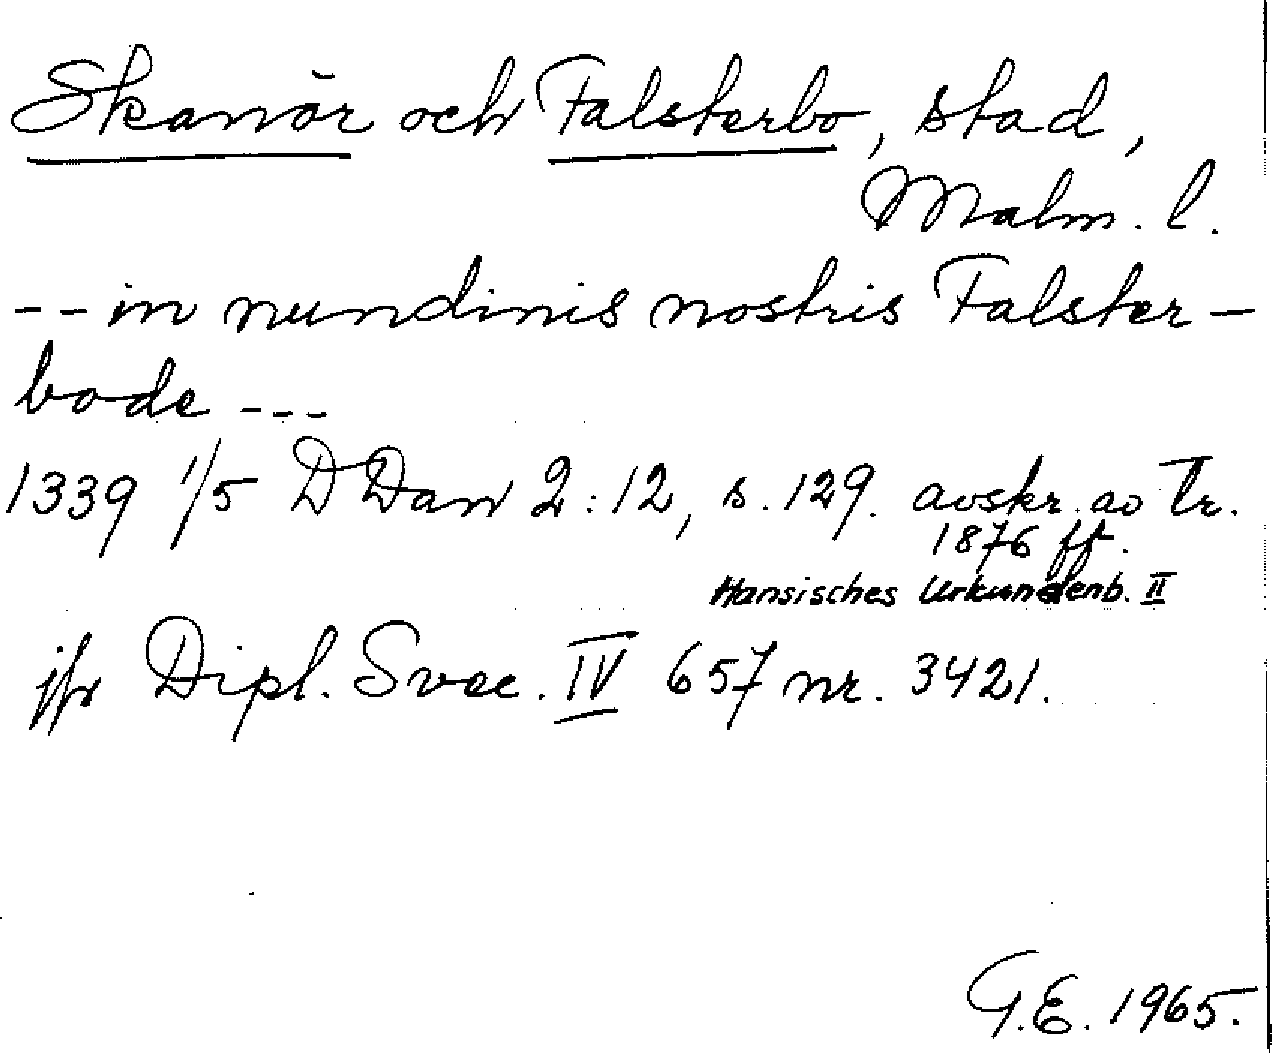 Skanör och Falsterbo, stad,
Malm. l.
--in nundinis nostris Falster-
bode ---
1339 1/5 DDan 2:12, s. 129. avskr. av Tr.
1876 ff.
Hansisches Urkundenb. II
jfr Dipl. Svec. IV 657 nr. 3421.
G.E. 1965.